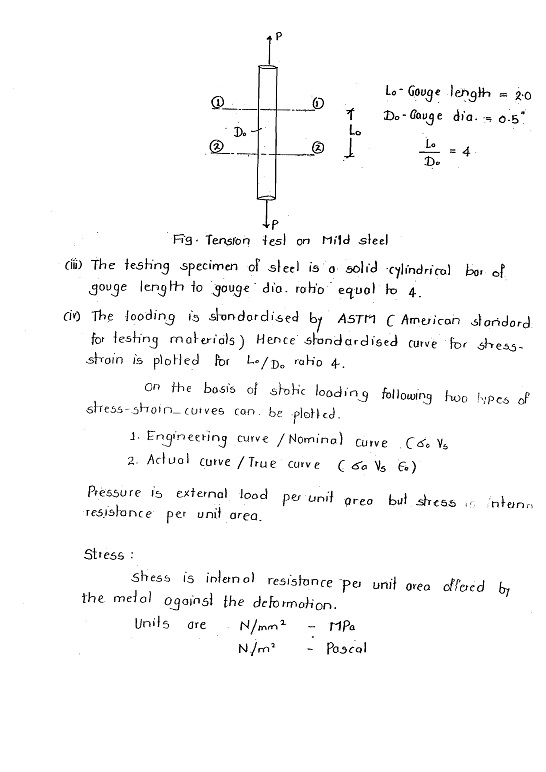 P
① ①
Do
Lo
② ②
P
Lo - Gauge length = 2.0
Do - Gauge dia. = 0.5"
Lo/Do = 4
Fig. Tension test on Mild steel
(iii) The testing specimen of steel is a solid cylindrical bar of
gauge length to gauge dia. ratio equal to 4.
(iv) The loading is standardised by ASTM ( American standard
for testing materials) Hence standardised curve for stress-
strain is plotted for Lo/Do ratio 4.
On the basis of static loading following two types of
stress-strain curves can be plotted.
1. Engineering curve / Nominal curve ( σo Vs
2. Actual curve / True curve ( σa Vs ϵo)
Pressure is external load per unit area but stress is intern
resistance per unit area.
Stress :
Stress is internal resistance per unit area offered by
the metal against the deformation.
Units are N/mm² - MPa
N/m² - Pascal